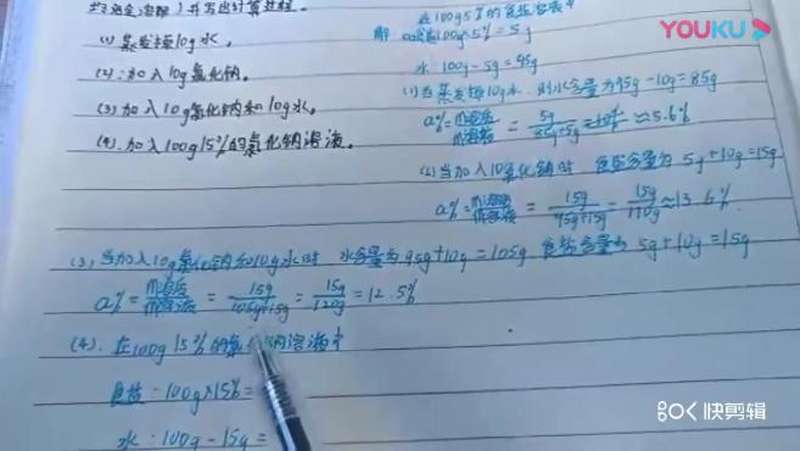 均完全溶解)并写出计算过程.
(1) 蒸发掉10g水,
(2). 加入10g氯化钠.
(3) 加入10g氯化钠和10g水.
(4). 加入100g15%的氯化钠溶液.
在100g5%的食盐溶液中
解 100g×5%=5g
水 100g-5g=95g
(1)当蒸发掉10g水. 则水含量为95g-10g=85g
a%= = 5g ≈5.6%
(2)当加入10g氯化钠时 食盐含量为 5g+10g=15g
a%= = 15g/95g+15g = 15g/110g ≈13.6%
(3). 当加入10g氯化钠和10g水时 水含量为95g+10g=105g 食盐含量为 5g+10g=15g
a%= = 15g/105g+15g = 15g/120g = 12.5%
(4). 在100g15%的氯化钠溶液中
食盐:100g×15%=
水:100g-15g=
YOUKU
快剪辑